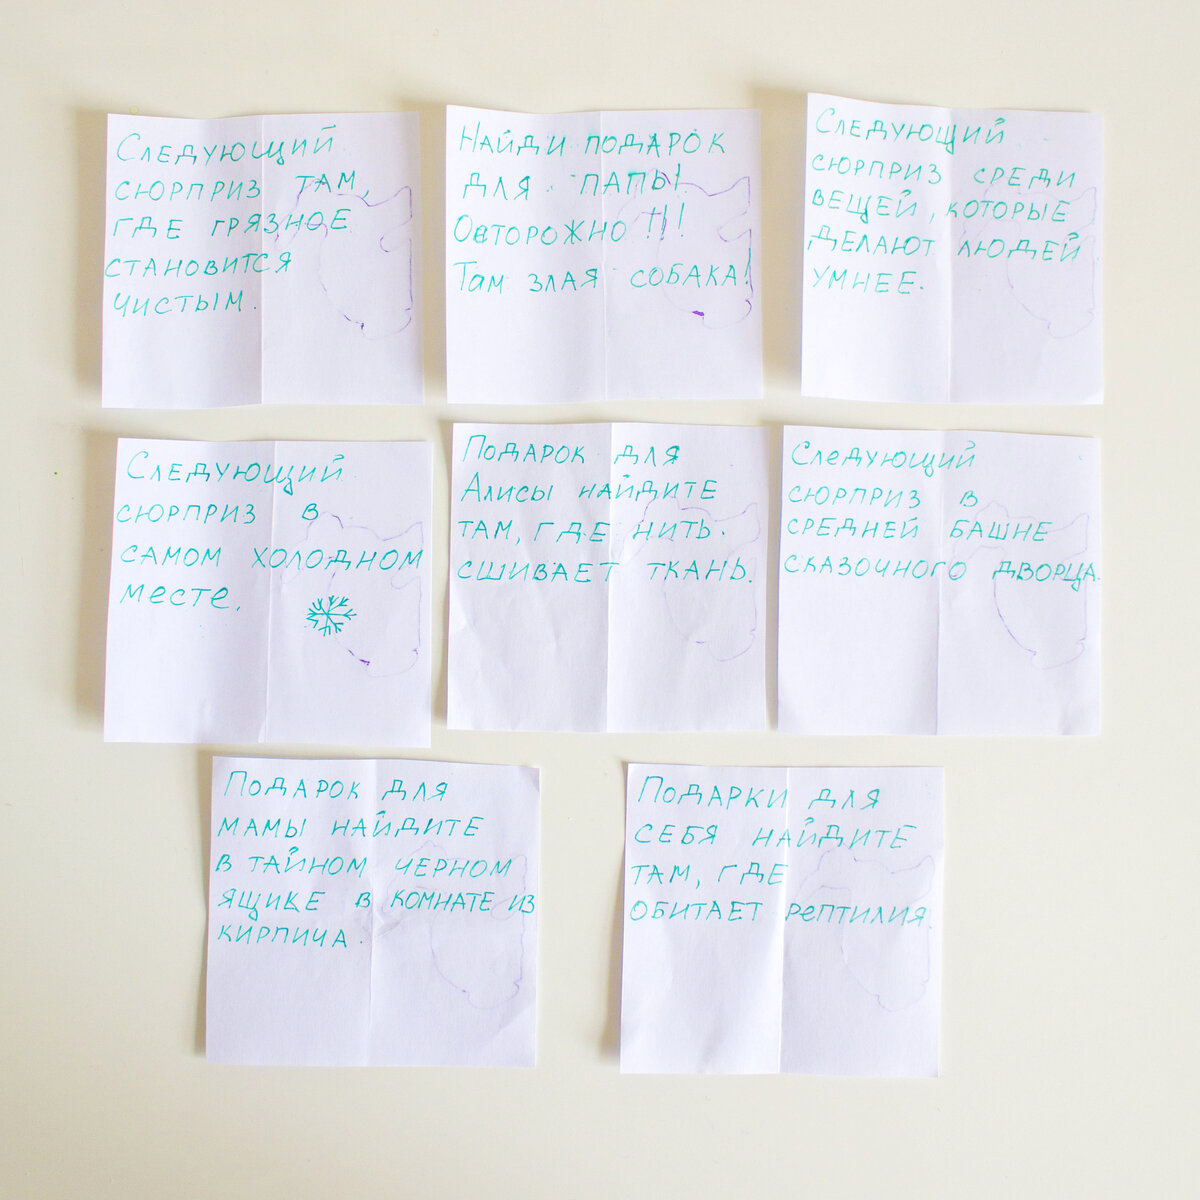 Следующий
сюрприз там,
где грязное
становится
чистым.
Найди подарок
для папы!
Осторожно!!!
Там злая собака!
Следующий
сюрприз среди
вещей, которые
делают людей
умнее.
Следующий
сюрприз в
самом холодном
месте.
Подарок для
Алисы найдите
там, где нить
сшивает ткань.
Следующий
сюрприз в
средней башне
сказочного дворца.
Подарок для
мамы найдите
в тайном черном
ящике в комнате из
кирпича.
Подарки для
себя найдите
там, где
обитает рептилия.